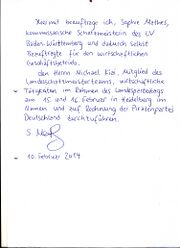 Hiermit beauftrage ich, Sophie Mathes,
kommissarische Schatzmeisterin des LV
Baden-Württemberg und dadurch selbst
Beauftragte für den wirtschaftlichen
Geschäftsbetrieb,
den Herrn Michael Kiei, Mitglied des
Landesschatzmeisterteams, wirtschaftliche
Tätigkeiten im Rahmen des Landesparteitags
am 15. und 16. Februar in Heidelberg im
Namen und auf Rechnung der Piratenpartei
Deutschland durchzuführen.
10. Februar 2014